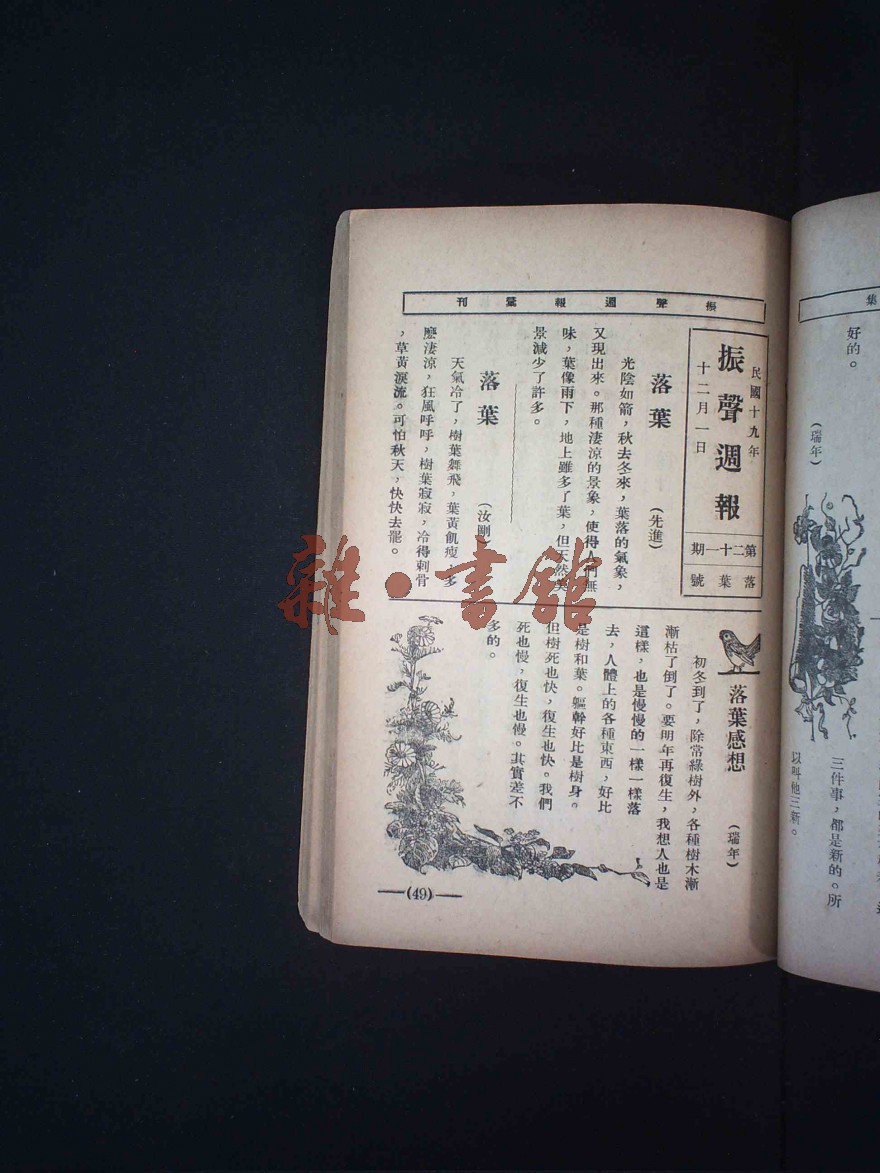 集
好的。
(瑞年)
三件事，都是新的。所
以叫他三新。
振聲週報彙刊
民國十九年
十二月一日
振聲週報
第二十一期
落葉號
落葉
(先進)
光陰如箭，秋去冬來，葉落的氣象，
又現出來。那種淒涼的景象，使得人們無
味，葉像雨下，地上雖多了葉，但天然美
景減少了許多。
落葉
(汝剛)
天氣冷了，樹葉舞飛，葉黃飢瘦，多
麽淒涼，狂風呼呼，樹葉寂寂，冷得刺骨
，草黃淚流。可怕秋天，快快去罷。
落葉感想
(瑞年)
初冬到了，除常綠樹外，各種樹木漸
漸枯了倒了。要明年再復生，我想人也是
這樣，也是慢慢的一樣一樣落
去，人體上的各種東西，好比
是樹和葉。軀幹好比是樹身。
但樹死也快，復生也快。我們
死也慢，復生也慢。其實差不
多的。
(49)
雜·書館